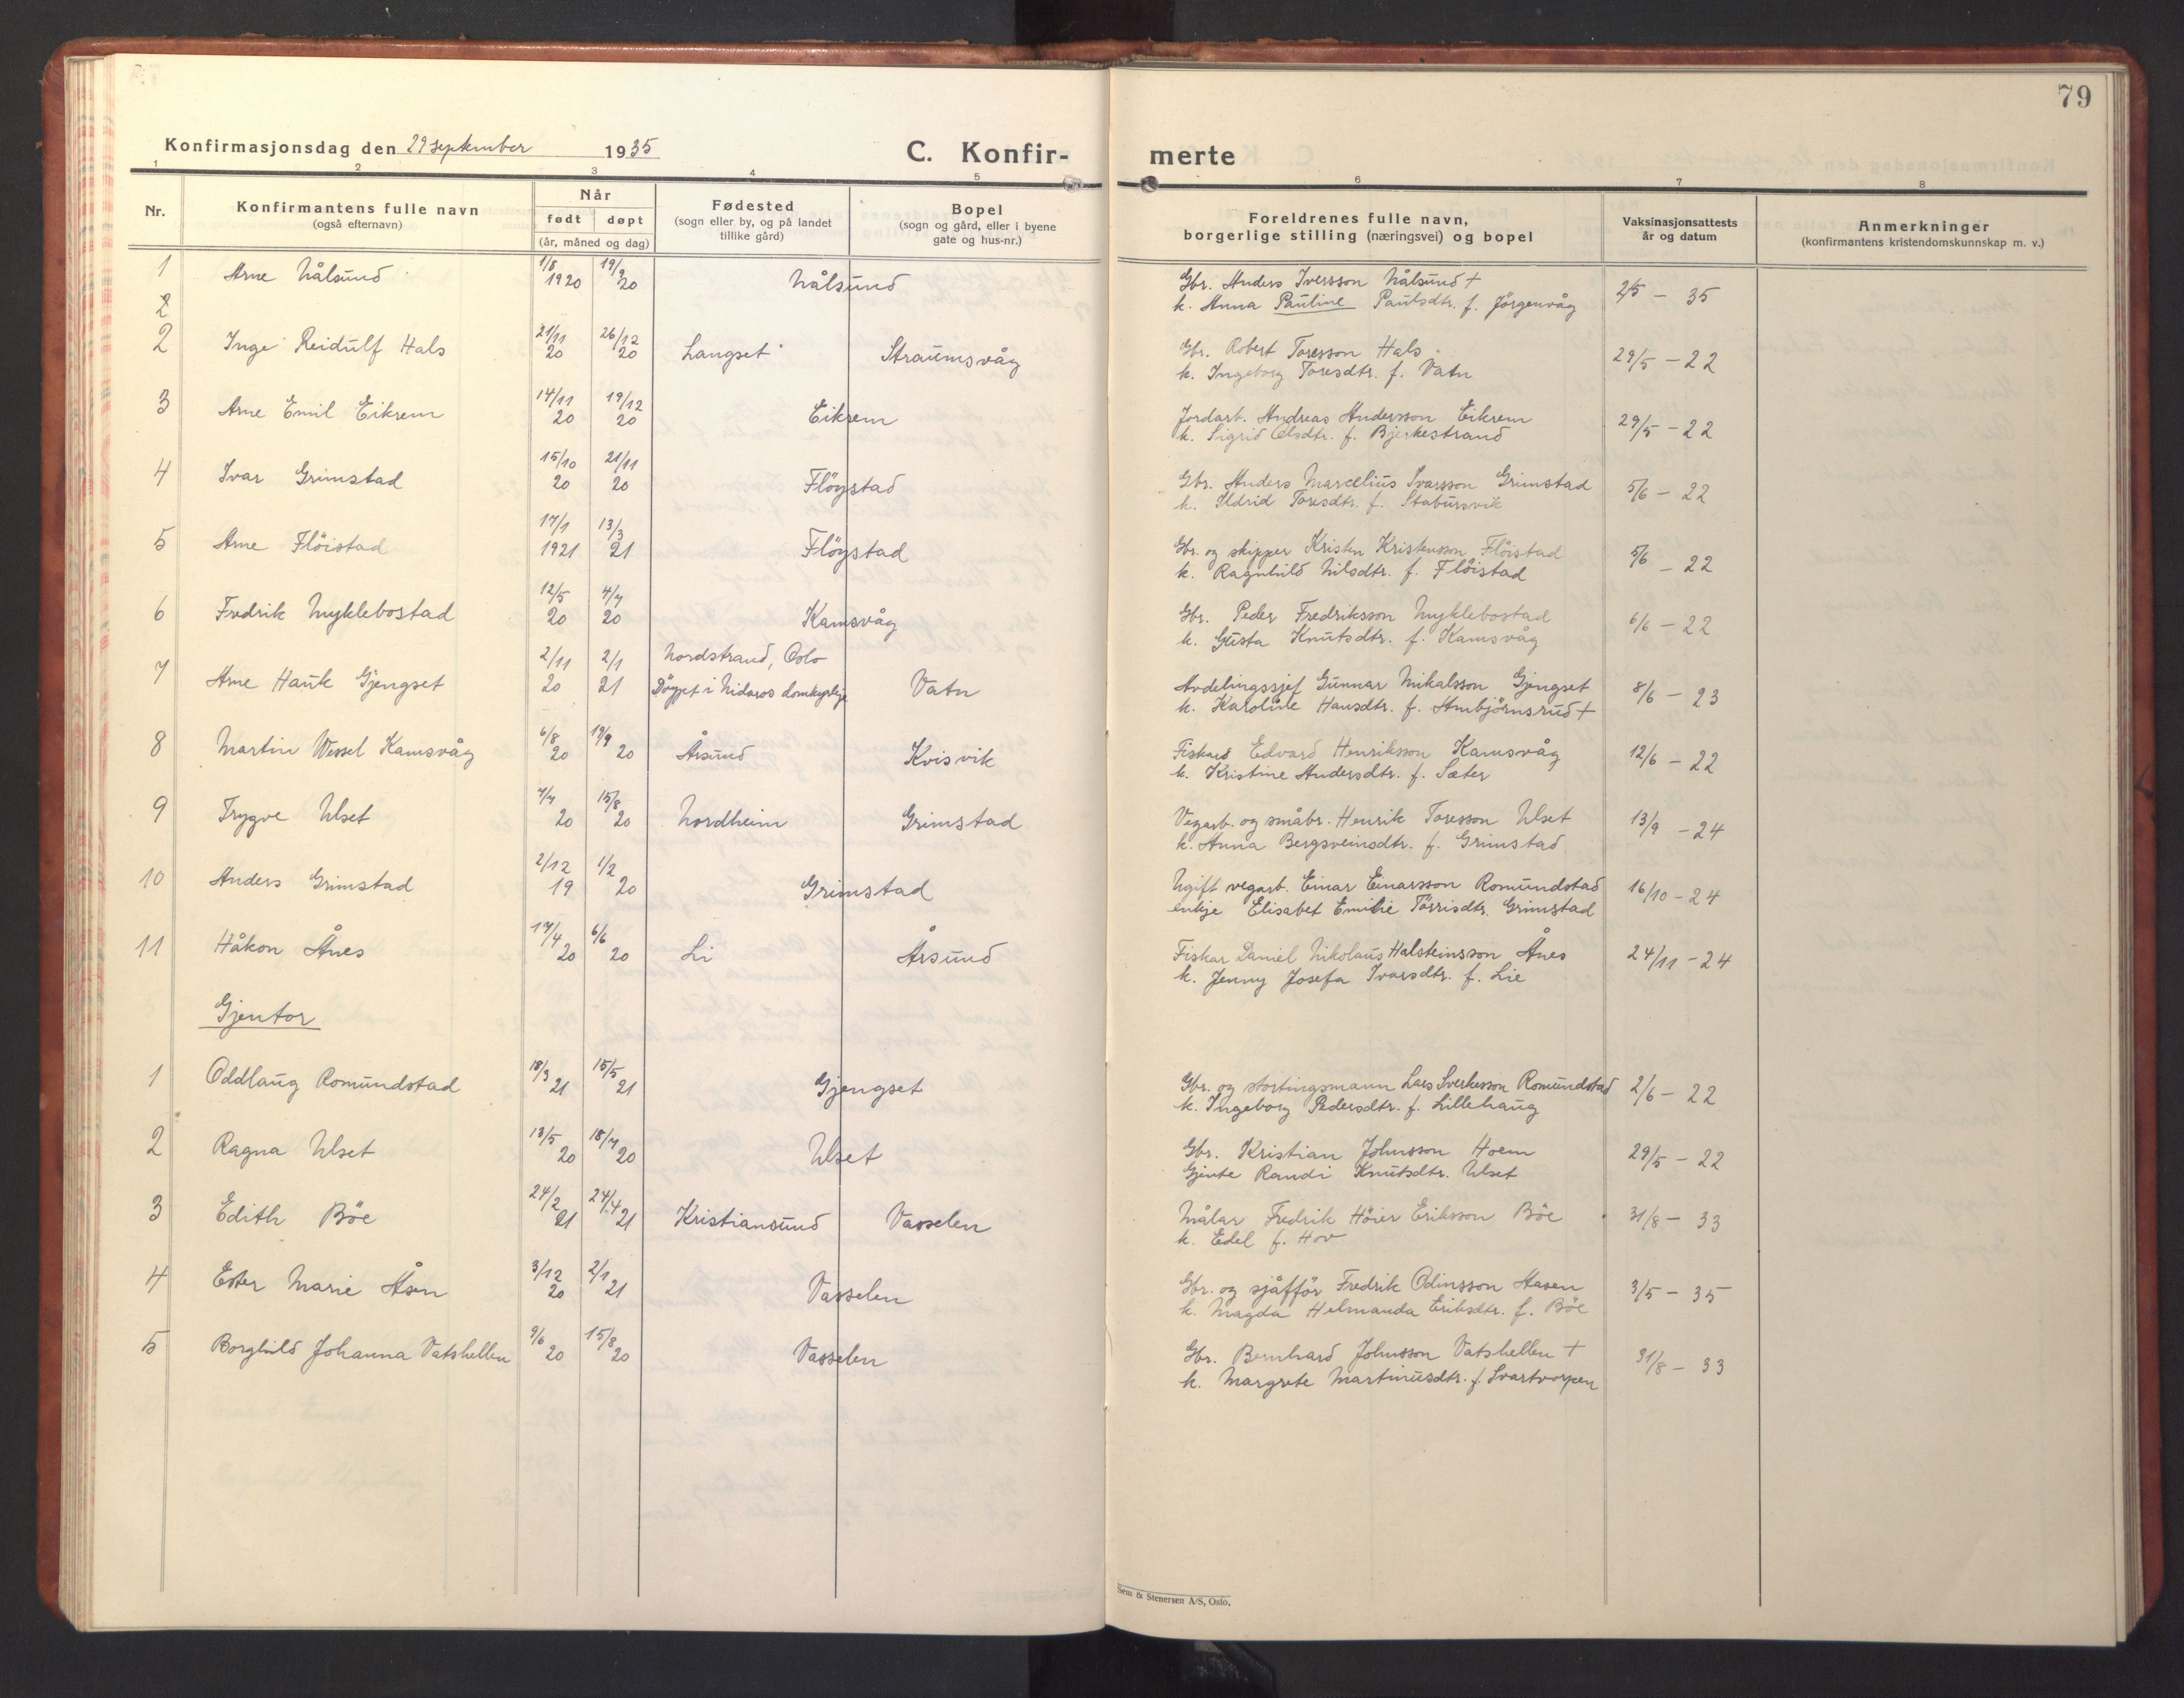 79
Konfirmasjonsdag den 29 september 1935
C. Konfir-
merte
1 2 3 4 5 6 7 8
Nr.
Konfirmantens fulle navn
(også efternavn)
Når
født døpt
(år, måned og dag)
Fødested
(sogn eller by, og på landet
tillike gård)
Bopel
(sogn og gård, eller i byene
gate og hus-nr.)
Foreldrenes fulle navn,
borgerlige stilling (næringsvei) og bopel
Vaksinasjonsattests
år og datum
Anmerkninger
(konfirmantens kristendomskunnskap m. v.)
1 Arne Nålsund 1/8 1920 19/9 20 Nålsund Gbr. Anders Iversson Nålsund + 2/5 - 35
k. Anna Pauline Paulsdtr. f. Jörgenvåg
2
2 Inge Reidulf Hals 21/11 20 26/12 20 Langset Straumsvåg Gbr. Robert Toresson Hals 29/5 - 22
k. Ingeborg Toresdtr. f. Vatn
3 Arne Emil Eikrem 14/11 20 19/12 20 Eikrem Jordarb. Andreas Andersson Eikrem 29/5 - 22
k. Sigrid Olsdtr. f. Bjerkestrand
4 Ivar Grimstad 15/10 20 21/11 20 Flöystad Gbr. Anders Marcelius Ivarsson Grimstad 5/6 - 22
k. Ildrid Toresdtr. f. Stabursvik
5 Arne Flöistad 17/1 1921 13/3 21 Flöystad Gbr. og skipper Kristen Kristensson Flöistad 5/6 - 22
k. Ragnhild Nilsdtr. f. Flöistad
6 Fredrik Nyklebostad 12/5 20 4/7 20 Kamsvåg Gbr. Peder Fredriksson Nyklebostad 6/6 - 22
k. Gusta Knutsdtr. f. Kamsvåg
7 Arne Hauk Gjengset 2/11 20 2/1 21 Nordstrand, Oslo
Döypt i Nidaros domkyrkje Vatn Avdelingssjef Gunnar Nikalsson Gjengset 8/6 - 23
k. Karoline Hansdtr. f. Ambjörnsrud +
8 Martin Wessel Kamsvåg 6/8 20 19/9 20 Årsund Kvisvik Fiskar Edvard Henriksson Kamsvåg 12/6 - 22
k. Kristine Andersdtr. f. Sæter
9 Trygve Ulset 7/7 20 15/8 20 Nordheim Grimstad Vegarb. og småbr. Henrik Toresson Ulset 13/9 - 24
k. Anna Bergsveinsdtr. f. Grimstad
10 Anders Grimstad 2/12 19 1/2 20 Grimstad Ugift vegarb. Einar Einarsson Romundstad 16/10 - 24
enkje Elisabet Emilie Törrisdtr. Grimstad
11 Håkon Ånes 17/4 20 6/6 20 Li Årsund Fiskar Daniel Nikolaus Halsteinsson Ånes 24/11 - 24
k. Jenny Josefa Ivarsdtr. f. Lie
Gjentor
1 Oddlaug Romundstad 18/3 21 15/5 21 Gjengset Gbr. og stortingsmann Lars Sverkesson Romundstad 2/6 - 22
k. Ingeborg Pedersdtr. f. Lillehaug
2 Ragna Ulset 13/5 20 18/7 20 Ulset Gbr. Kristian Johnsson Hoem 29/5 - 22
Gjente Randi Knutsdtr. Ulset
3 Edith Böe 24/2 21 24/4 21 Kristiansund Vasselen Målar Fredrik Höier Eriksson Böe 31/8 - 33
k. Edel f. Hov
4 Ester Marie Åsen 3/12 20 2/1 21 Vasselen Gbr. og sjåfför Fredrik Odinsson Aasen 3/5 - 35
k. Magda Helmanda Eriksdtr. f. Böe
5 Borghild Johanna Vatshellen 9/6 20 15/8 20 Vasselen Gbr. Bernhard Johnsson Vatshellen + 31/8 - 33
k. Margrete Martinusdtr. f. Svartvorpen
Sem & Stenersen A/S, Oslo.